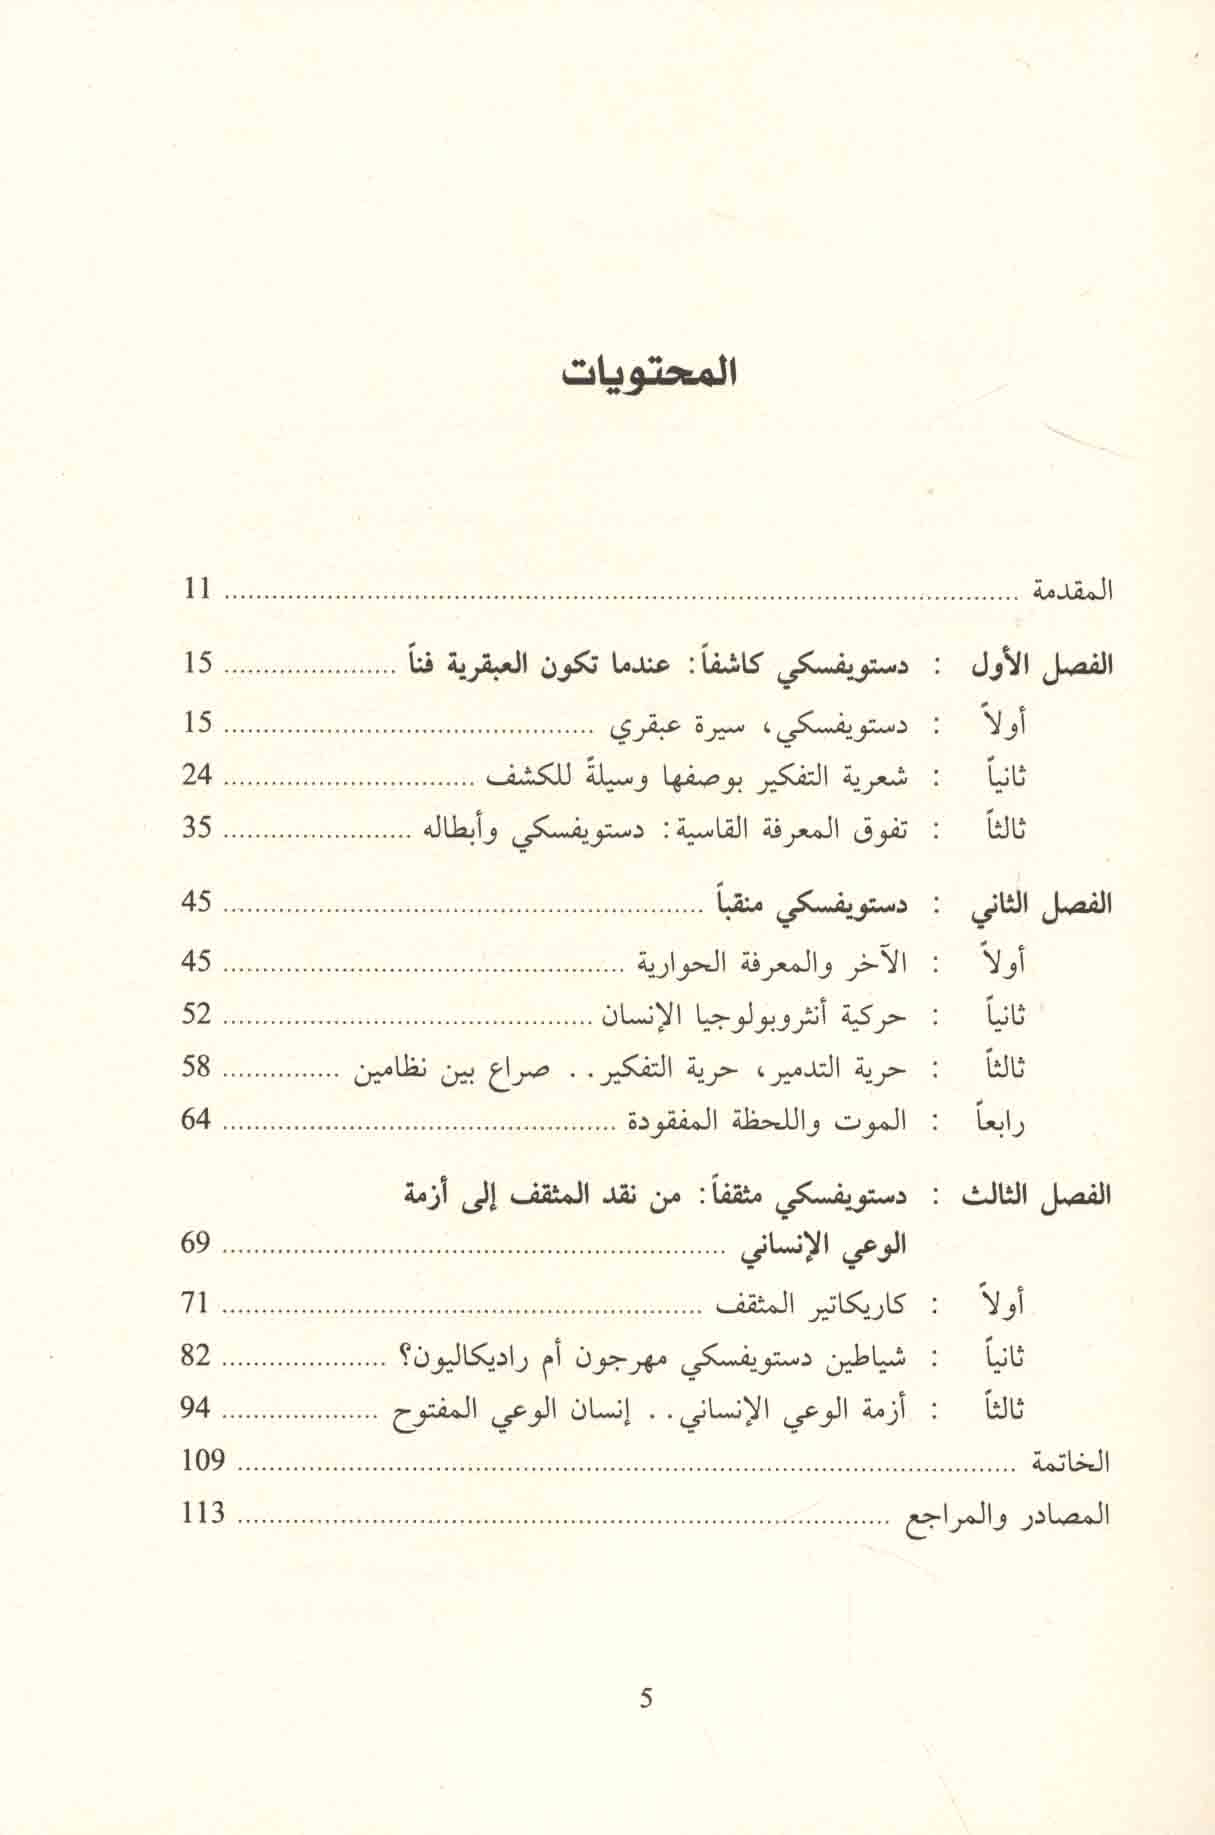 المحتويات
المقدمة ........ 11
الفصل الأول : دستويفسكي كاشفاً: عندما تكون العبقرية فناً ........ 15
أولاً : دستويفسكي، سيرة عبقري ........ 15
ثانياً : شعرية التفكير بوصفها وسيلةً للكشف ........ 24
ثالثاً : تفوق المعرفة القاسية: دستويفسكي وأبطاله ........ 35
الفصل الثاني : دستويفسكي منقباً ........ 45
أولاً : الآخر والمعرفة الحوارية ........ 45
ثانياً : حركية أنثروبولوجيا الإنسان ........ 52
ثالثاً : حرية التدمير، حرية التفكير.. صراع بين نظامين ........ 58
رابعاً : الموت واللحظة المفقودة ........ 64
الفصل الثالث : دستويفسكي مثقفاً: من نقد المثقف إلى أزمة
الوعي الإنساني ........ 69
أولاً : كاريكاتير المثقف ........ 71
ثانياً : شياطين دستويفسكي مهرجون أم راديكاليون؟ ........ 82
ثالثاً : أزمة الوعي الإنساني.. إنسان الوعي المفتوح ........ 94
الخاتمة ........ 109
المصادر والمراجع ........ 113
5